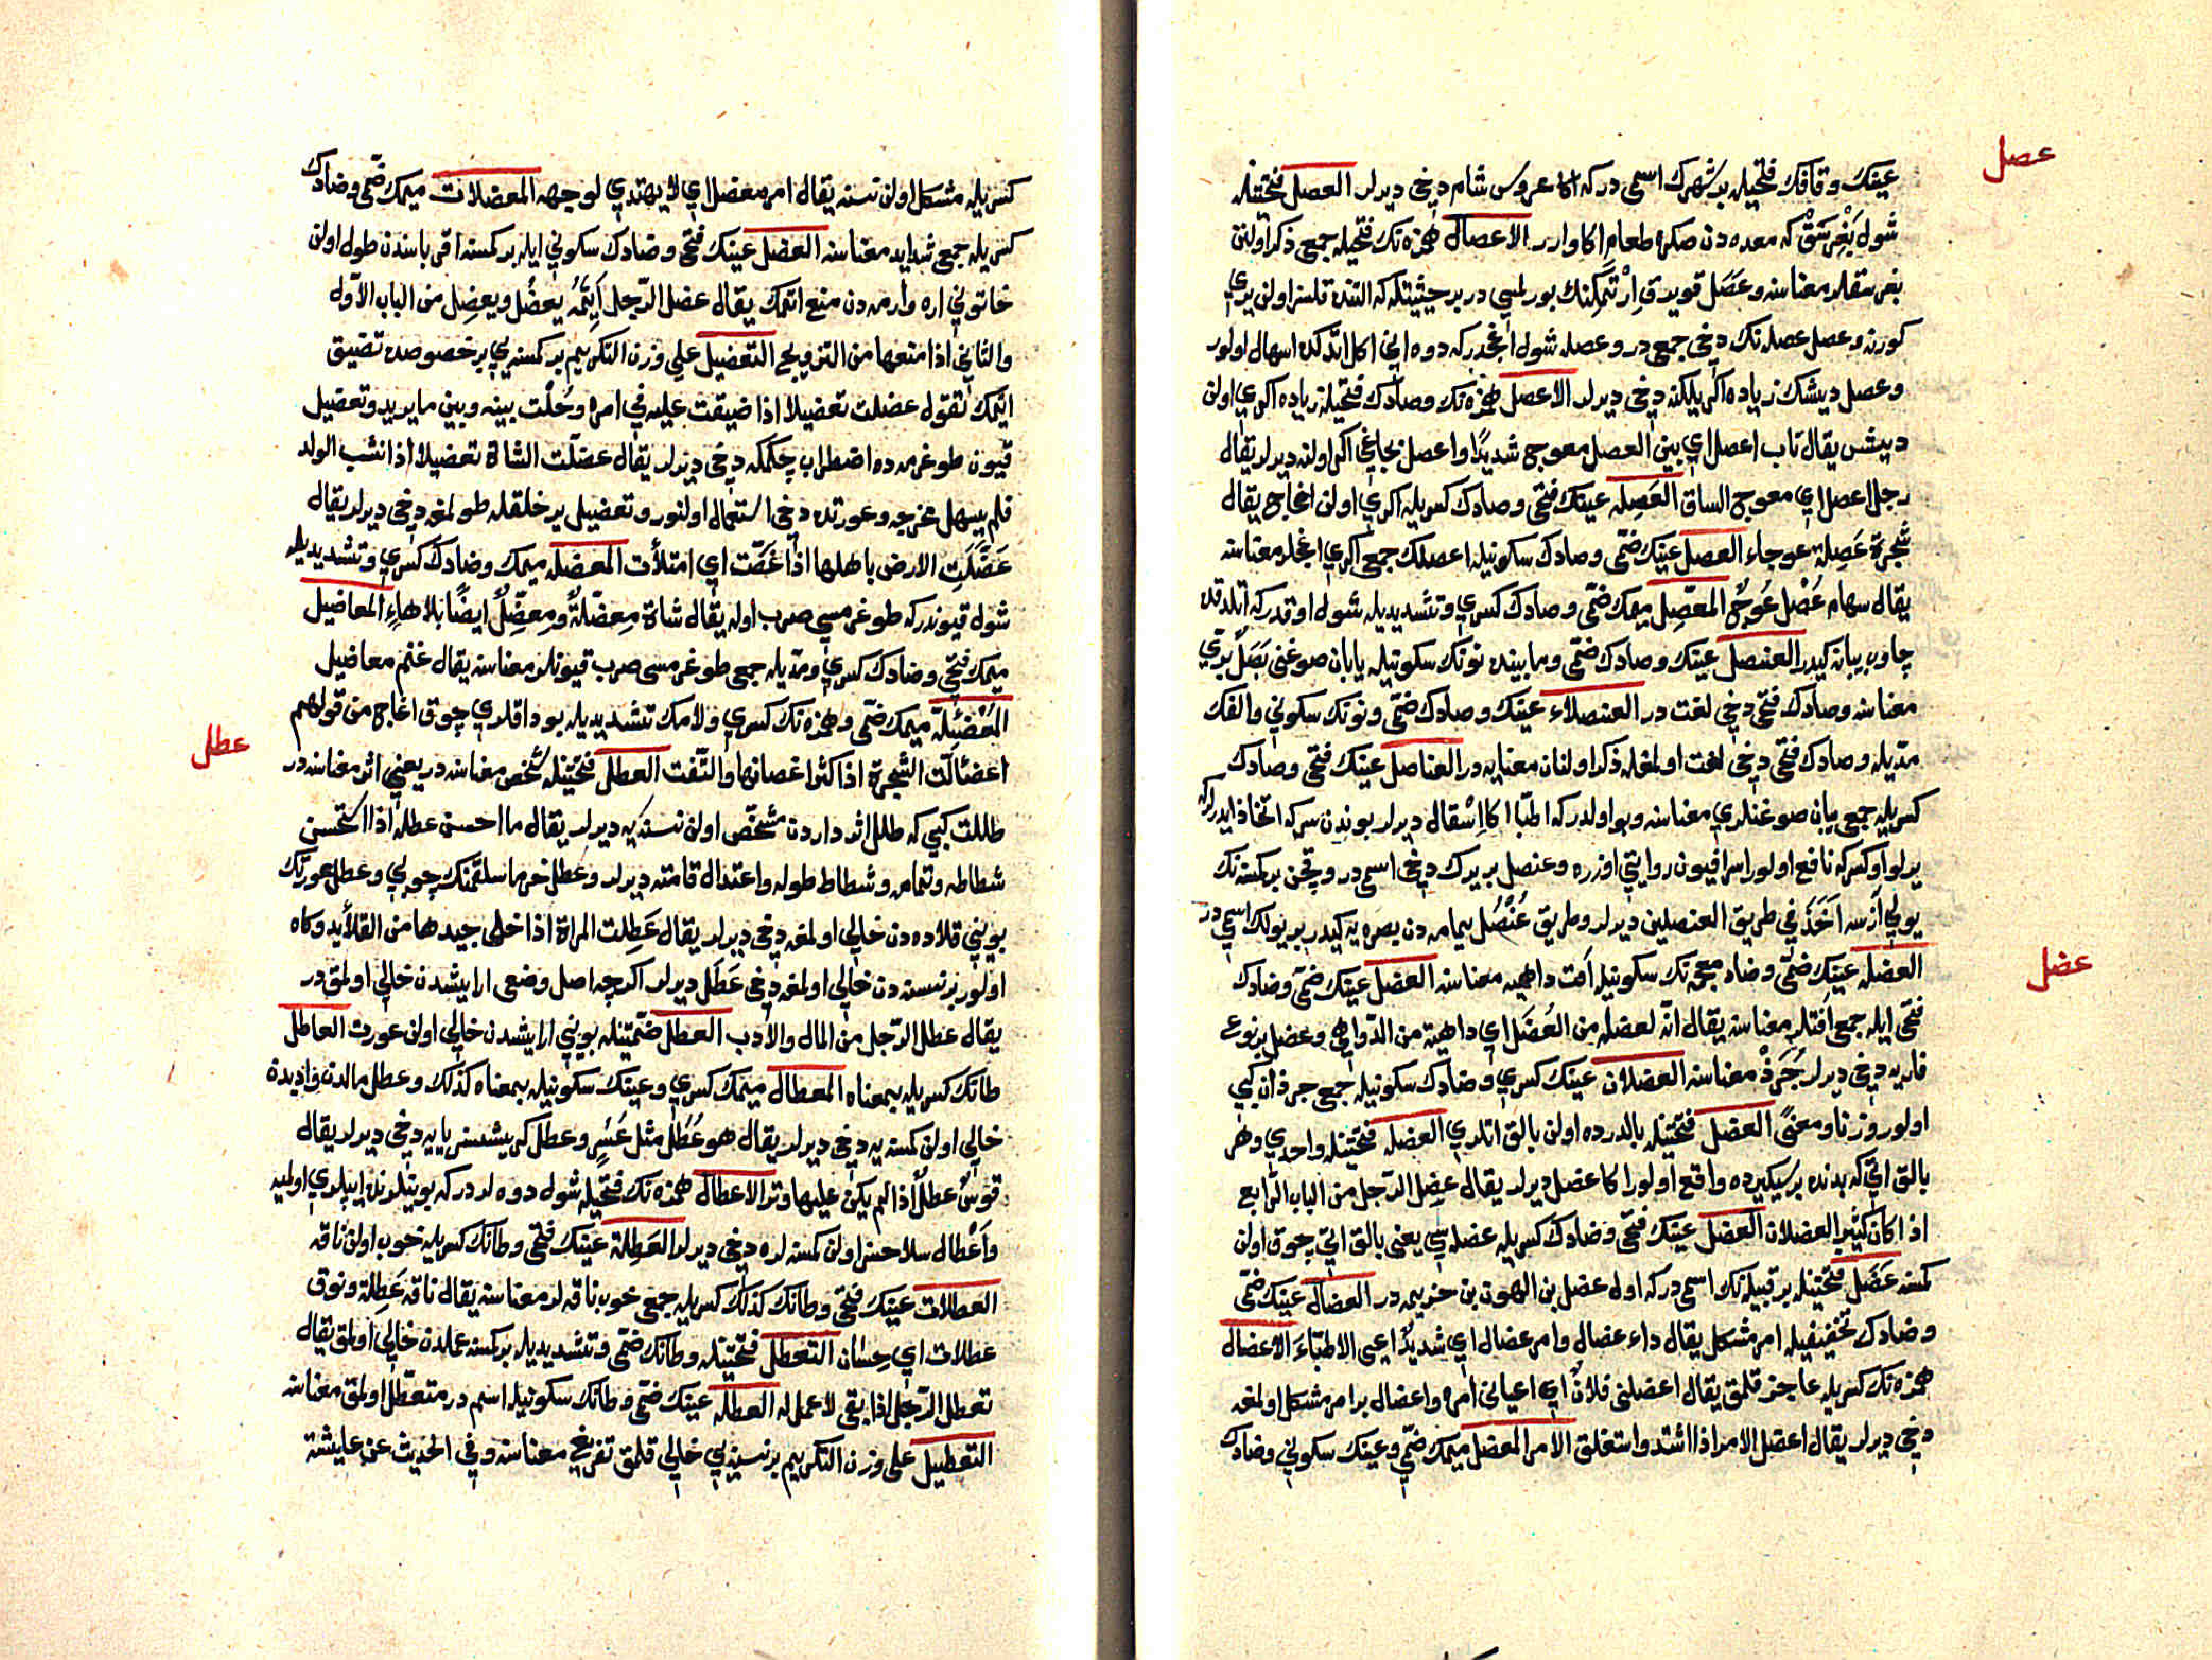 عصل
عينك وقافك فتحيله بر شهرك اسمى در كه اكا عروس شام دخى ديرلر العصل فتحتيله
شول بغرسق كه معده دن صكره طعام اكا وارر الاعصال همزه نك فتحيله جمع ذكر اولنن
بغرسقلر معناسنه وعصل قويرق ارتمكنك بورلمسى در بر حيثيتله كه التنده تلسز اولن يرى
كورنه وعصل عصله نك دخى جمعى در وعصله شول اغجدر كه دوه انى اكل اتدكده اسهال اولور
وعصل ديشك زياده اكريلكنه دخى ديرلر الاعصل همزه نك وصادك فتحيله زياده اكرى اولن
ديشه يقال ناب اعصل اى بين العصل معوج شديدا واعصل بجاغى اكرى اولنه ديرلر يقال
رجل اعصل اى معوج الساق العصله عينك فتحى وصادك كسريله اكرى اولن اغاج يقال
شجرة عصلة عوجاء العصل عينك ضمى وصادك سكونيله اعصلك جمعى اكرى اغجلر معناسنه
يقال سهام عصل عوج المعصل ميمك ضمى وصادك كسرى وتشديديله شول اوقدر كه اتلدقده
چاوب يبانه كيدر العنصل عينك وصادك ضمى ومابينده نونك سكونيله يابان صوغنى بصل برى
معناسنه وصادك فتحى دخى لغت در العنصلاء عينك وصادك ضمى ونونك سكونى والفك
مديله وصادك فتحى دخى لغت اولمغله ذكر اولنان معنايه در العناصل عينك فتحى وصادك
كسريله جمعى يبان صوغنلرى معناسنه وبو اولدر كه اطبا اكا اشقال ديرلر بوندن سركه اتخاذ ايدرلر كه
يرلو اوكسركه نافع اولور اسرافيون روايتى اوزره وعنصل بر يرك دخى اسمى در وقچن بر كمسنه نك
يولى ازسه اخذ فى طريق العنصلين ديرلر وطريق عنصل يمامه دن بصره يه كيدر بر يولك اسمى در
عضل
العضله عينك ضمى وضاد معجمه نك سكونيله افت داهيه معناسنه العضل عينك ضمى وضادك
فتحى ايله جمعى افتلر معناسنه يقال انه لعضلة من العضل اى داهية من الدواهى وعضل بر نوع
فاره يه دخى ديرلر جرذ معناسنه العضلان عينك كسرى وضادك سكونيله جمعى جرذان كبى
اولور وزنا ومعنى العضل فتحتيله بالدرده اولن بالق اتلرى العضله فتحتيله واحدى وهر
بالق اتى كه بدنده بر سكيرده واقع اولور اكا عضل ديرلر يقال عضل الرجل من الباب الرابع
اذا كان كثير العضلات العضل عينك فتحى وضادك كسريله عضله سى يعنى بالق اتى چوق اولن
كمسنه عضل فتحتيله بر قبيله نك اسمى در كه اول عضل بن الهون بن خزيمه در العضال عينك ضمى
وضادك تخفيفيله امر مشكل يقال داء عضال وامر عضال اى شديد اعيى الاطباء الاعضال
همزه نك كسريله عاجز قلمق يقال اعضلنى فلان اى اعيانى امره واعضال بر امر مشكل اولمغه
دخى ديرلر يقال اعضل الامر اذا اشتد واستغلق الامر المعضل ميمك ضمى وعينك سكونى وضادك
كسريله مشكل اولن نسنه يقال امر معضل اى لا يهتدى لوجهه المعضلات ميمك ضمى وضادك
كسريله جمعى شدايد معناسنه العضل عينك فتحى وضادك سكونى ايله بر كمسنه اقرباسندن طول اولن
خاتونى اره وارمه دن منع اتمك يقال عضل الرجل ايمه يعضل ويعضل من الباب الاول
والثانى اذا منعها من التزويج التعضيل على وزن التكريم بر كمسنه يى بر خصوصده تضييق
اتمك تقول عضلت تعضيلا اذا ضيقت عليه فى امره وحلت بينه وبين ما يريد وتعضيل
قيون طوغرمه ده اضطراب چكمكه دخى ديرلر يقال عضلت الشاة تعضيلا اذا نشب الولد
فلم يسهل مخرجه وعورتده دخى استعمال اولنور وتعضيل ير خلقله طولمغه دخى ديرلر يقال
عضلت الارض باهلها اذا غصت اى امتلأت المعضله ميمك وضادك كسرى وتشديديله
شول قيوندر كه طوغرمسى صرب اوله يقال شاة معضلة ومعضل ايضا بلا هاء المعاضيل
ميمك فتحى وضادك كسرى ومديله جمعى طوغرمسى صرب قيونلر معناسنه يقال غنم معاضيل
المعضئلة ميمك ضمى وهمزه نك كسرى ولامك تشديديله بوداقلرى چوق اغاج من قولهم
عطل
اعضئالت الشجرة اذا كثر اغصانها والتفت العطل فتحتيله شخص معناسنه در يعنى اثر معناسنه در
طللت كبى كه طلل اثر داردن مشخص اولن نسنه يه ديرلر يقال ما احسن عطله اذا استحسن
شطاطه وتمامه وشطاط طوله واعتدال قامته ديرلر وعطل خرما سلقمنك چوپى وعطل عورتك
بوينى قلاده دن خالى اولمغه دخى ديرلر يقال عطلت المراة اذا خلى جيدها من القلايد وكاه
اولور بر نسنه دن خالى اولمغه دخى عطل ديرلر اكرچه اصل وضعى ارايشدن خالى اولمق در
يقال عطل الرجل من المال والادب العطل ضمتيله بوينى ارايشدن خالى اولن عورت العاطل
طانك كسريله بمعناه المعطال ميمك كسرى وعينك سكونيله بمعناه كذلك وعطل مالدن وادبدن
خالى اولن كمسنه يه دخى ديرلر يقال هو عطل مثل عسر وعطل كريشسز يايه دخى ديرلر يقال
قوس عطل اذا لم يكن عليها وتر الاعطال همزه نك فتحيله شول دوه لردر كه بوينلرنده ايپلرى اولميه
واعطال سلاحسز اولن كمسنلره دخى ديرلر العطلة عينك فتحى وطانك كسريله خوب اولن ناقه
العطلات عينك فتحى وطانك كذلك كسريله جمعى خوب ناقه لر معناسنه يقال ناقة عطلة ونوق
عطلات اى حسان التعطل فتحتيله وطانك ضمى وتشديديله بر كمسنه عملدن خالى اولمق يقال
تعطل الرجل اذا بقى لا عمل له العطله عينك ضمى وطانك سكونيله اسم در متعطل اولمق معناسنه
التعطيل على وزن التكريم بر نسنه يى خالى قلمق تفريغ معناسنه وفى الحديث عن عايشة